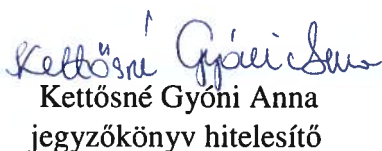 Kettősné Gyóni Anna
Kettősné Gyóni Anna
jegyzőkönyv hitelesítő